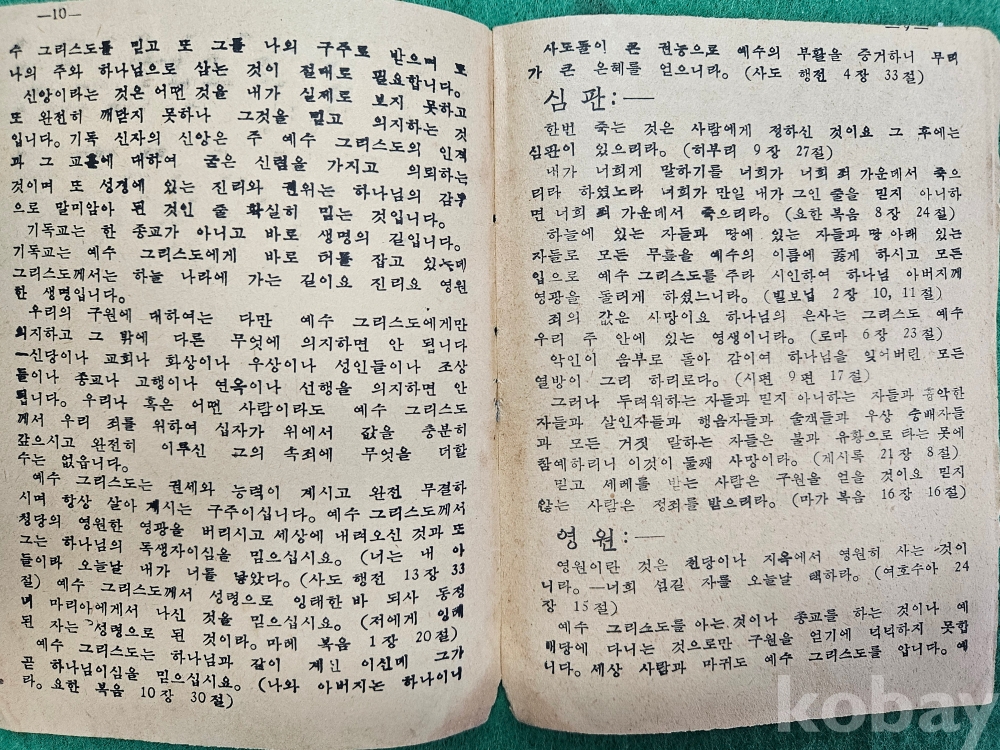 —9—
사도들이 큰 권능으로 예수의 부활을 증거하니 무리
가 큰 은혜를 얻으니라. (사도 행전 4 장 33 절)
심 판 : —
한번 죽는 것은 사람에게 정하신 것이요 그 후에는
심판이 있으리라. (히부리 9 장 27 절)
내가 너희게 말하기를 너희가 너희 죄 가운데서 죽으
리라 하였노라 너희가 만일 내가 그인 줄을 믿지 아니하
면 너희 죄 가운데서 죽으리라. (요한 복음 8 장 24 절)
하늘에 있는 자들과 땅에 있는 자들과 땅 아래 있는
자들로 모든 무릎을 예수의 이름에 꿇게 하시고 모든
입으로 예수 그리스도를 주라 시인하여 하나님 아버지께
영광을 돌리게 하셨느니라. (빌보넙 2 장 10, 11 절)
죄의 값은 사망이요 하나님의 은사는 그리스도 예수
우리 주 안에 있는 영생이니라. (로마 6 장 23 절)
악인이 음부로 돌아 감이여 하나님을 잊어버린 모든
열방이 그리 하리로다. (시편 9 편 17 절)
그러나 두려워하는 자들과 믿지 아니하는 자들과 흉악한
자들과 살인자들과 행음자들과 술객들과 우상 숭배자들
과 모든 거짓 말하는 자들은 불과 유황으로 타는 못에
참예하리니 이것이 둘째 사망이라. (계시록 21 장 8 절)
믿고 세례를 받는 사람은 구원을 얻을 것이요 믿지
않는 사람은 정죄를 받으리라. (마가 복음 16 장 16 절)
영 원 : —
영원이란 것은 천당이나 지옥에서 영원히 사는 것이
니라. —너희 섬길 자를 오늘날 택하라. (여호수아 24
장 15 절)
예수 그리스도를 아는 것이나 종교를 하는 것이나 예
배당에 다니는 것으로만 구원을 얻기에 넉넉하지 못합
니다. 세상 사람과 마귀도 예수 그리스도를 압니다. 예
—10—
수 그리스도를 믿고 또 그를 나의 구주로 받으며 또
나의 주와 하나님으로 삼는 것이 절대로 필요합니다.
신앙이라는 것은 어떤 것을 내가 실제로 보지 못하고
또 완전히 깨닫지 못하나 그것을 믿고 의지하는 것
입니다. 기독 신자의 신앙은 주 예수 그리스도의 인격
과 그 교훈에 대하여 굳은 신렴을 가지고 의뢰하는
것이며 또 성경에 있는 진리와 권위는 하나님의 감부
으로 말미암아 된 것인 줄 확실히 믿는 것입니다.
기독교는 한 종교가 아니고 바로 생명의 길입니다.
기독교는 예수 그리스도에게 바로 터를 잡고 있는데
그리스도께서는 하늘 나라에 가는 길이요 진리요 영원
한 생명입니다.
우리의 구원에 대하여는 다만 예수 그리스도에게만
의지하고 그 밖에 다른 무엇에 의지하면 안 됩니다
—신당이나 교회나 화상이나 우상이나 성인들이나 조상
들이나 종교나 고행이나 연옥이나 선행을 의지하면 안
됩니다. 우리나 혹은 어떤 사람이라도 예수 그리스도
께서 우리 죄를 위하여 십자가 위에서 값을 충분히
갚으시고 완전히 이루신 그의 속죄에 무엇을 더할
수는 없읍니다.
예수 그리스도는 권세와 능력이 계시고 완전 무결하
시며 항상 살아 계시는 구주이십니다. 예수 그리스도께서
청당의 영원한 영광을 버리시고 세상에 내려오신 것과 또
그는 하나님의 독생자이심을 믿으십시요. (너는 내 아
들이라 오늘날 내가 너를 낳았다. (사도 행전 13 장 33
절) 예수 그리스도께서 성령으로 잉태한 바 되사 동정
녀 마리아에게서 나신 것을 믿으십시요. (저에게 잉태
된 자는 성령으로 된 것이라. 마태 복음 1 장 20 절)
예수 그리스도는 하나님과 같이 계신 이신데 그가
곧 하나님이심을 믿으십시요. (나와 아버지는 하나이니
라. 요한 복음 10 장 30 절)
kobay